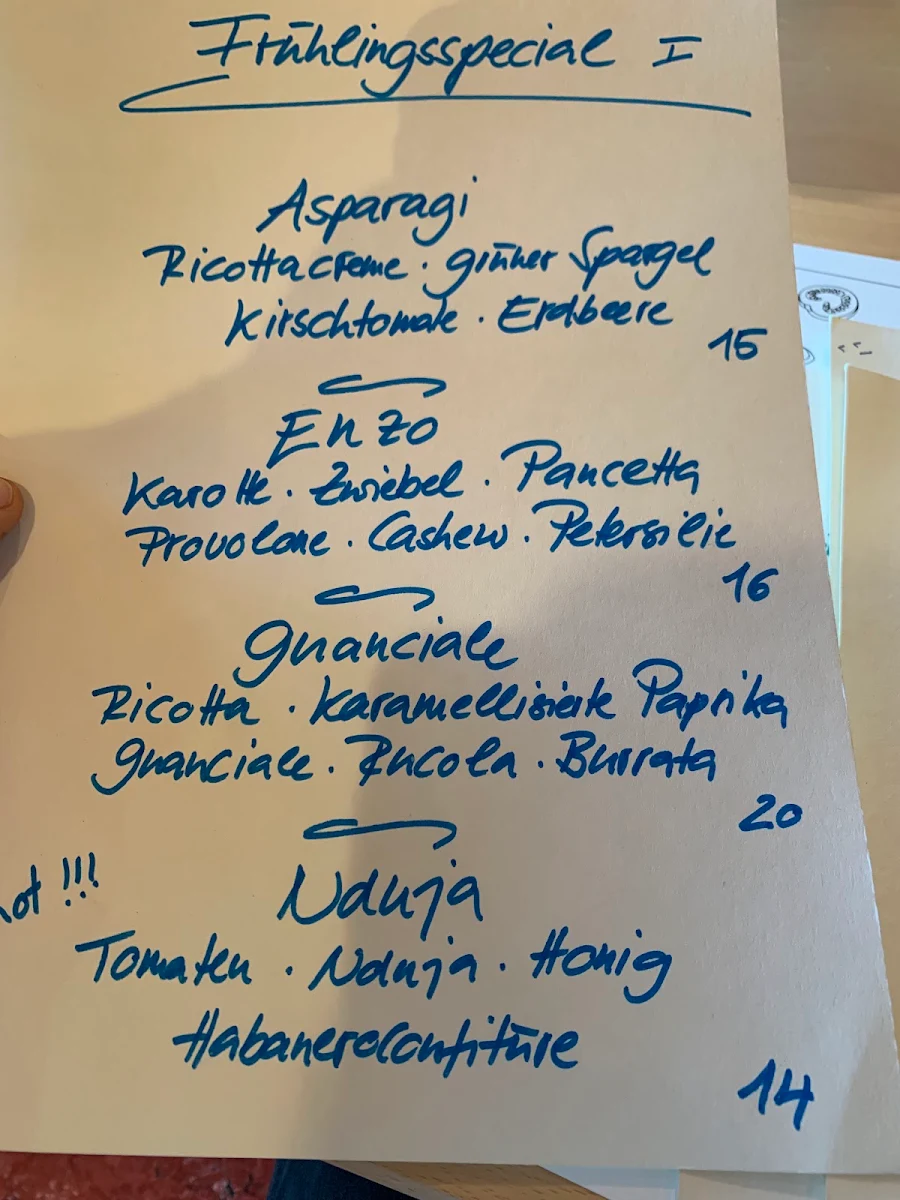 Frühlingsspecial I
Asparagi
Ricottacreme · grüner Spargel
Kirschtomate · Erdbeere
15
Enzo
Karotte · Zwiebel · Pancetta
Provolone · Cashew · Petersilie
16
Guanciale
Ricotta · Karamellisierte Paprika
Guanciale · Rucola · Burrata
20
hot !!!
Nduja
Tomaten · Nduja · Honig
Habaneroconfitüre
14